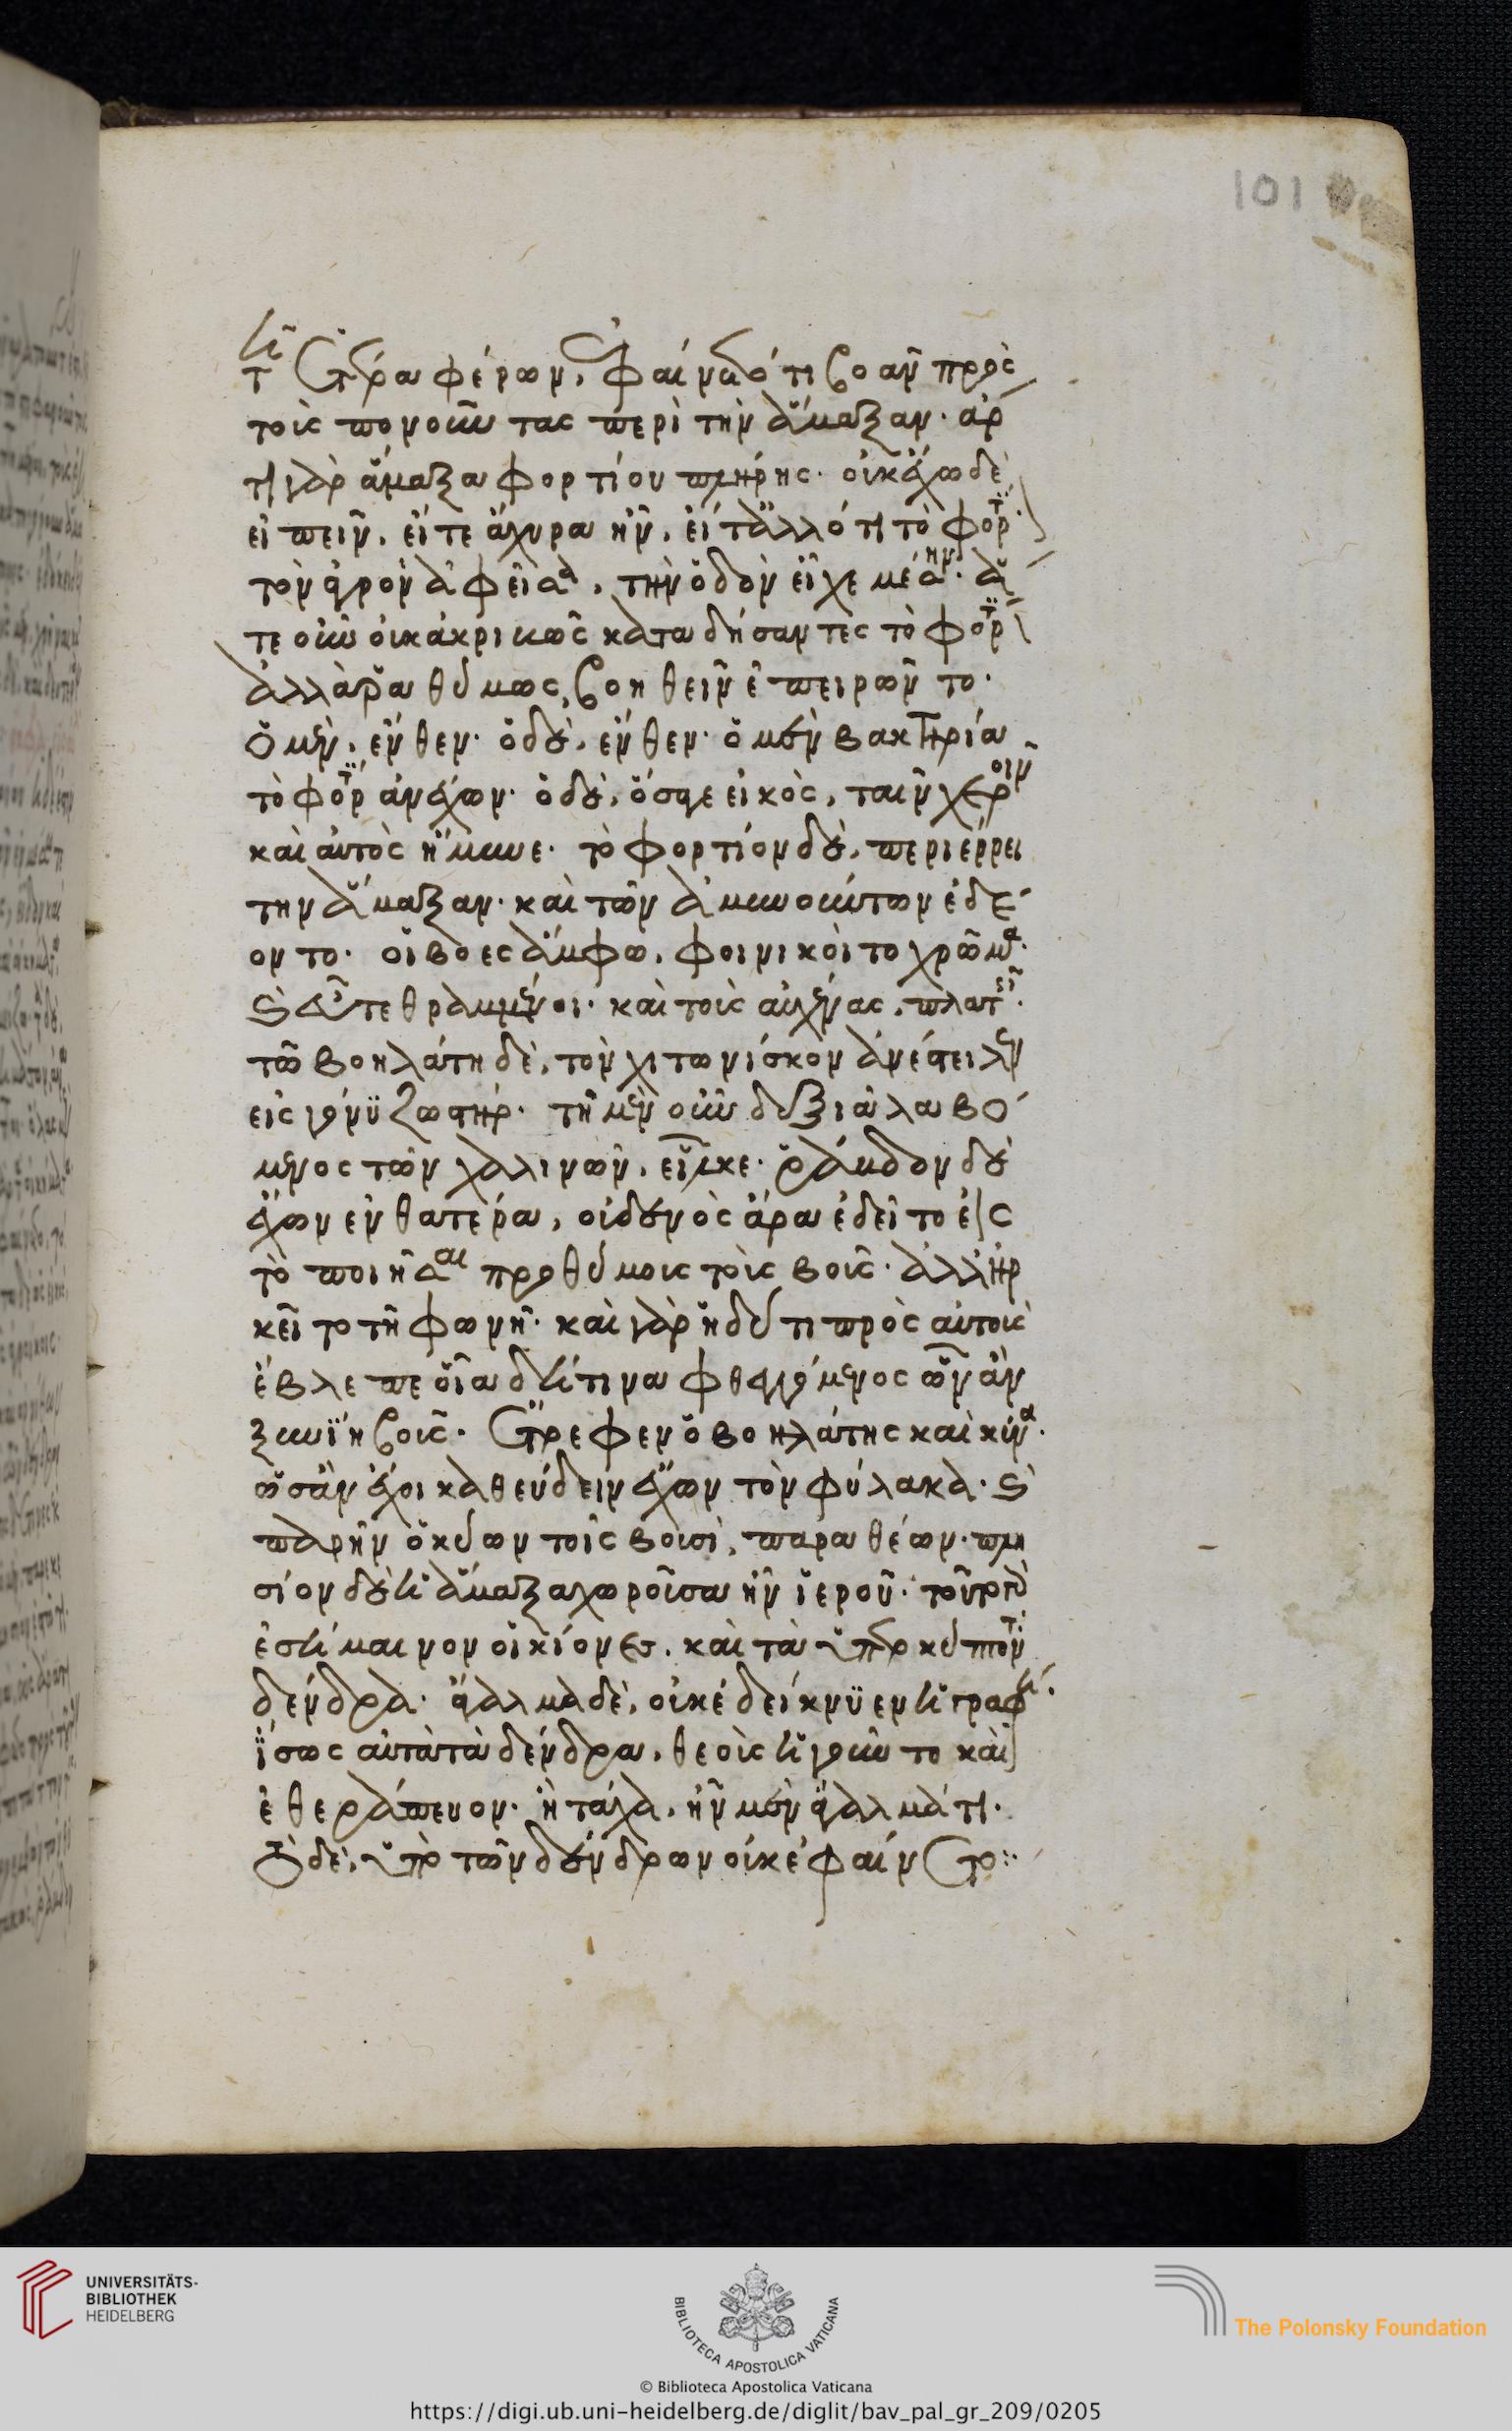 101
τὴν ἑτέραν φέρων, ἐφαίνετό τι βοᾶν πρὸς
τοὺς πονοῦντας περὶ τὴν ἅμαξαν· ἀρ
τὴ γὰρ ἅμαξα φορτίου πλήρης· οὐκ ἔχω δὲ
εἰπεῖν, εἴτε ἄχυρα ἦν, εἴτ' ἄλλό τι τὸ φορτ
τὸν ἀγρὸν ἀφεῖσα, τὴν ὁδὸν εἶχε μέσην· ἅ
τε οὖν οὐκ ἀκριβῶς καταδήσαντες τὸ φορτ
ἀλλὰ ῥαθύμως, βοηθεῖν ἐπειρῶντο·
ὁ μὲν, ἔνθεν· ὁ δὲ, ἔνθεν· ὁ μὲν βακτηρία
τὸ φορτ ἀνέχων· ὁ δὲ, ὥσπερ εἰκὸς, ταῖν χεροῖν
καὶ αὐτὸς ἤμυνε· τὸ φορτίον δὲ, περιέρρει
τὴν ἅμαξαν· καὶ τῶν ἀμυνούντων ἐδέ
οντο· οἱ βόες ἄμφω, φοινικοῖ τὸ χρῶμα·
καὶ εὖ τεθραμμένοι· καὶ τοὺς αὐχένας, πλατεῖς·
τῷ βοηλάτη δὲ, τὸν χιτωνίσκον ἀνέστειλεν
εἰς γόνυ ζωστήρ· τῇ μὲν οὖν δεξιᾷ λαβό
μενος τῶν χαλινῶν, εἷλκε· ῥάβδον δὲ
ἔχων ἐν θατέρα, οὐδενὸς ἄρα ἐδεῖτο ἐς
τὸ ποιῆσαι προθύμους τοὺς βοῦς· ἀλλ' ἤρ
κεῖτο τῇ φωνῇ· καὶ γὰρ ἤδη τι πρὸς αὐτοὺς
ἔβλεπε οἷα δή τινα φθεγγόμενος ὧν ἂν
ξυνίη βοῦς· ἔτρεφεν ὁ βοηλάτης καὶ κύνα·
ὡς ἂν ἔχοι καθεύδειν ἔχων τὸν φύλακα· καὶ
παρῆν ὁ κύων τοῖς βουσὶ, παραθέων· πλη
σίον δὲ ἡ ἅμαξα χωροῦσα ἦν ἱεροῦ· τοῦτο γὰρ
ἐσήμαινον οἱ κίονες, καὶ τὰ ὑπερκύπτοντα
δένδρα· ἄγαλμα δὲ, οὐκ ἐδείκνυεν ἡ γραφή·
ἴσως αὐτὰ τὰ δένδρα, θεοὺς ἡγοῦντο καὶ
ἐθεράπευον· ἢ τάχα, ἦν μὲν ἄγαλμά τι·
τὸ δὲ, ὑπὸ τῶν δένδρων οὐκ ἐφαίνετο:
UNIVERSITÄTS-
BIBLIOTHEK
HEIDELBERG
BIBLIOTECA APOSTOLICA VATICANA
The Polonsky Foundation
© Biblioteca Apostolica Vaticana
https://digi.ub.uni-heidelberg.de/diglit/bav_pal_gr_209/0205